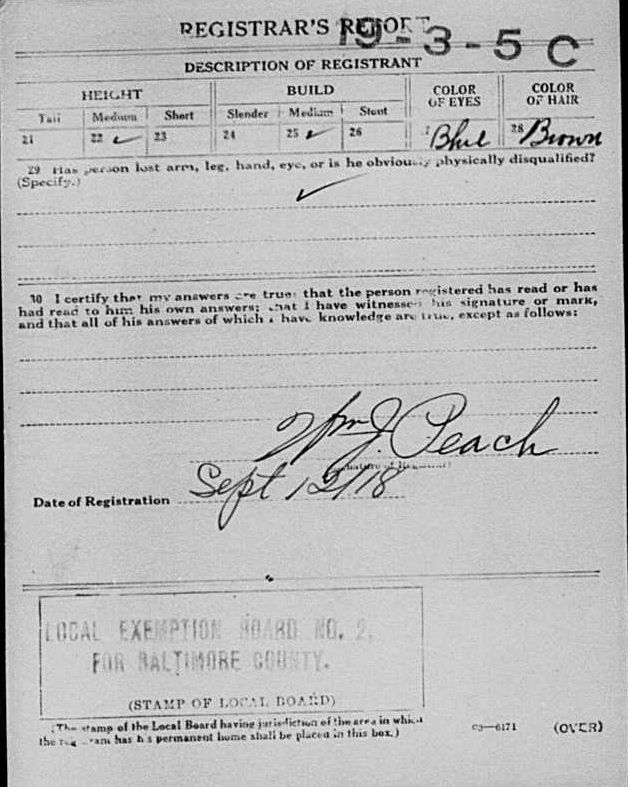 REGISTRAR'S REPORT
19-3-5 C
DESCRIPTION OF REGISTRANT
HEIGHT BUILD COLOR OF EYES COLOR OF HAIR
Tall Medium Short Slender Medium Stout
21 22 ✓ 23 24 25 ✓ 26 27 Blue 28 Brown
29 Has person lost arm, leg, hand, eye, or is he obviously physically disqualified?
(Specify.)
✓
30 I certify that my answers are true; that the person registered has read or has
had read to him his own answers; that I have witnessed his signature or mark,
and that all of his answers of which I have knowledge are true, except as follows:
Wm J. Peach
(Signature of Registrar)
Date of Registration Sept 12/18
LOCAL EXEMPTION BOARD NO. 2,
FOR BALTIMORE COUNTY.
(STAMP OF LOCAL BOARD)
(The stamp of the Local Board having jurisdiction of the area in which
the registrant has his permanent home shall be placed in this box.)
03—6171 (OVER)